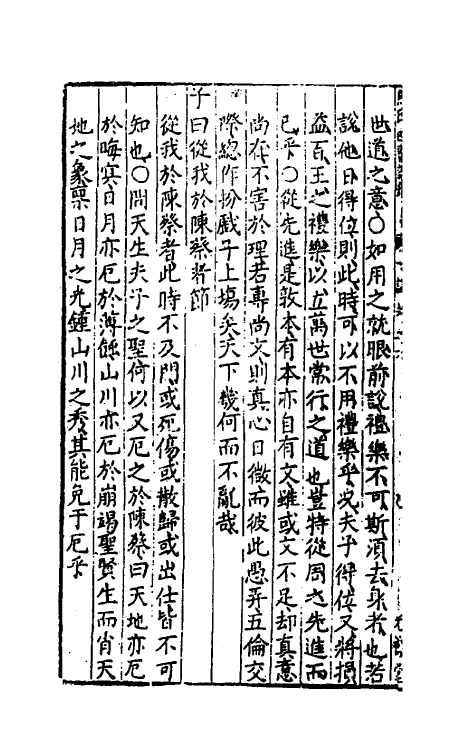 世道之意○如用之就眼前說禮樂不可斯須去身者也若
說他日得位則此時可以不用禮樂乎况夫子得位又將損
益百王之禮樂以立萬世常行之道也豈特從周之先進而
已乎○從先進是敦本有本亦自有文雖或文不足却真意
尚存不害於理若專尚文則真心日微而彼此愚弄五倫交
際總作扮戲子上塲矣天下幾何而不亂哉
子曰從我於陳蔡者節
從我於陳蔡者此時不及門或死傷或散歸或出仕皆不可
知也○問天生夫子之聖何以又厄之於陳蔡曰天地亦厄
於晦冥日月亦厄於薄蝕山川亦厄於崩竭聖賢生而肖天
地之象稟日月之光鍾山川之秀其能免于厄乎